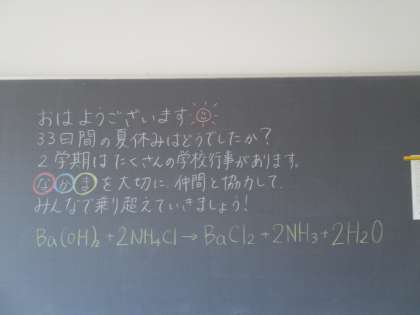 おはようございます
33日間の夏休みはどうでしたか?
2学期はたくさんの学校行事があります。
なかまを大切に、仲間と協力して、
みんなで乗り超えていきましょう!
Ba(OH)₂+2NH₄Cl→BaCl₂+2NH₃+2H₂O